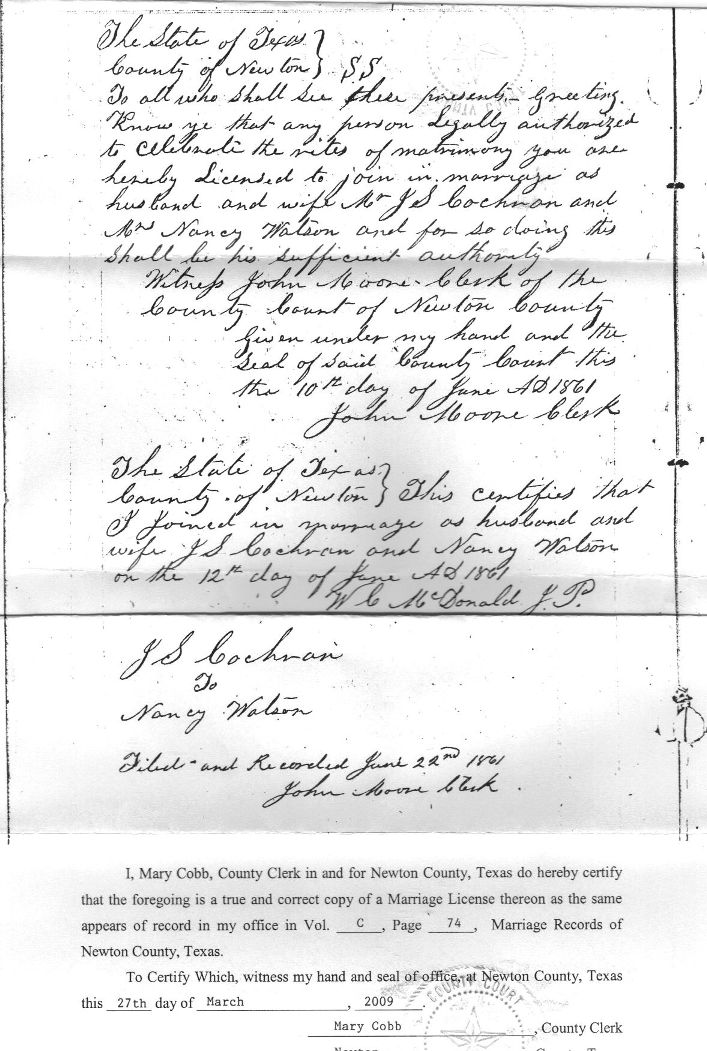 The State of Texas }
County of Newton } SS
To all who shall see these presents - Greeting.
Know ye that any person Legally authorized
to celebrate the rites of matrimony you are
hereby Licensed to join in marriage as
husband and wife Mr J S Cochran and
Mrs Nancy Watson and for so doing this
shall be his sufficient authority
Witness John Moore - Clerk of the
County Court of Newton County
Given under my hand and the
Seal of said County Court this
the 10th day of June AD 1861
John Moore Clerk
The State of Texas }
County of Newton } This certifies that
I Joined in marriage as husband and
wife J S Cochran and Nancy Watson
on the 12th day of June AD 1861
W C McDonald J. P.
J S Cochran
To
Nancy Watson
Filed - and Recorded June 22nd 1861
John Moore Clerk .
I, Mary Cobb, County Clerk in and for Newton County, Texas do hereby certify
that the foregoing is a true and correct copy of a Marriage License thereon as the same
appears of record in my office in Vol. C , Page 74 , Marriage Records of
Newton County, Texas.
To Certify Which, witness my hand and seal of office, at Newton County, Texas
this 27th day of March , 2009 .
COUNTY COURT
Mary Cobb , County Clerk
Newton